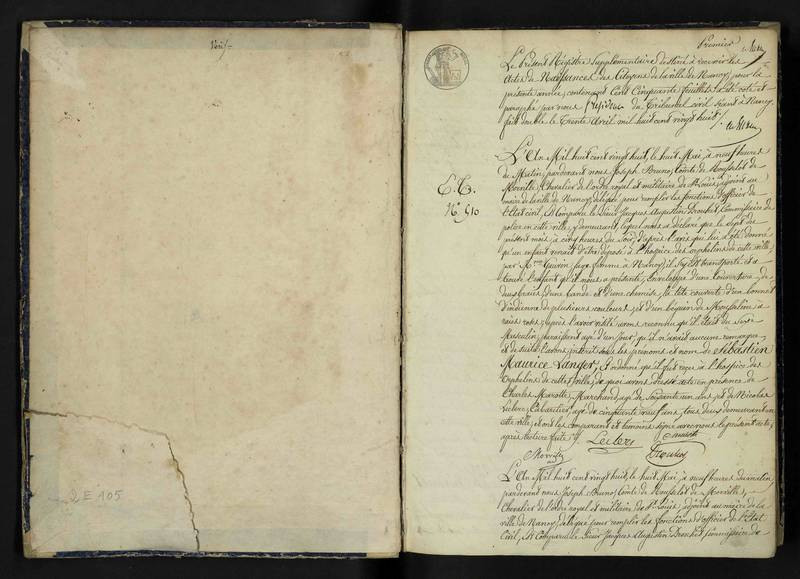 2 E 105
Premier
Le Présent Régistre Supplémentaire destiné à recevoir les
Actes de Naissances des Citoyens de la ville de Nancy, pour la
présente année, contenant Cent Cinquante feuillets a été coté et
paraphé par nous Président du Tribunal civil séant à Nancy,
fait double le Trente Avril mil huit cent vingt huit
E. C.
N° 510
L'An Mil huit cent vingt huit, le huit Mai, à neuf heures
du Matin, pardevant nous Joseph Bruno, Comte de Monfalot de
Morville, Chevalier de l'ordre royal et militaire de St Louis, adjoint au
maire de la ville de Nancy, délégué pour remplir les fonctions d'officier de
l'État civil, Est Comparu le Sieur Jacques Augustin Commissaire de
police en cette ville, y demeurant, lequel nous a déclaré que le sept du
présent mois à cinq heures du Soir, d'après l'avis qui lui a été donné
qu'un enfant venait d'être déposé à l'hospice des orphelins de cette ville
par femme à Nancy, il s'y est transporté et a
trouvé l'enfant qu'il nous a présenté, enveloppé d'une couverture de
d'une bande et d'une chemise, la tête couverte d'un bonnet
d'indienne de plusieurs couleurs, et d'un béguin de Mousseline à
raies roses; après l'avoir visité avons reconnu qu'il était du Sexe
Masculin, paraissant agé d'un jour, qu'il n'avait aucune remarque,
et de suite l'avons inscrit sous les prénoms et nom de Sébastien
Maurice Langer, et ordonné qu'il fut reçu à l'hospice des
Orphelins de cette ville, de quoi avons dressé acte en présence de
Charles Marotte, Marchand agé de Soixante un ans, et de Nicolas
Leclerc, Cabaretier, agé de cinquante neuf ans, tous deux demeurant en
cette ville, et ont les comparant et témoins signé avec nous le présent acte,
après lecture faite.
Leclerc
Morville
L'An Mil huit cent vingt huit, le huit Mai à neuf heures du matin,
pardevant nous Joseph Bruno, Comte de Monfalot de Morville,
Chevalier de l'ordre royal et militaire de St Louis, adjoint au maire de la
ville de Nancy, délégué pour remplir les fonctions d'officier de l'État
Civil, Est Comparu le Sieur Jacques Augustin Commissaire de